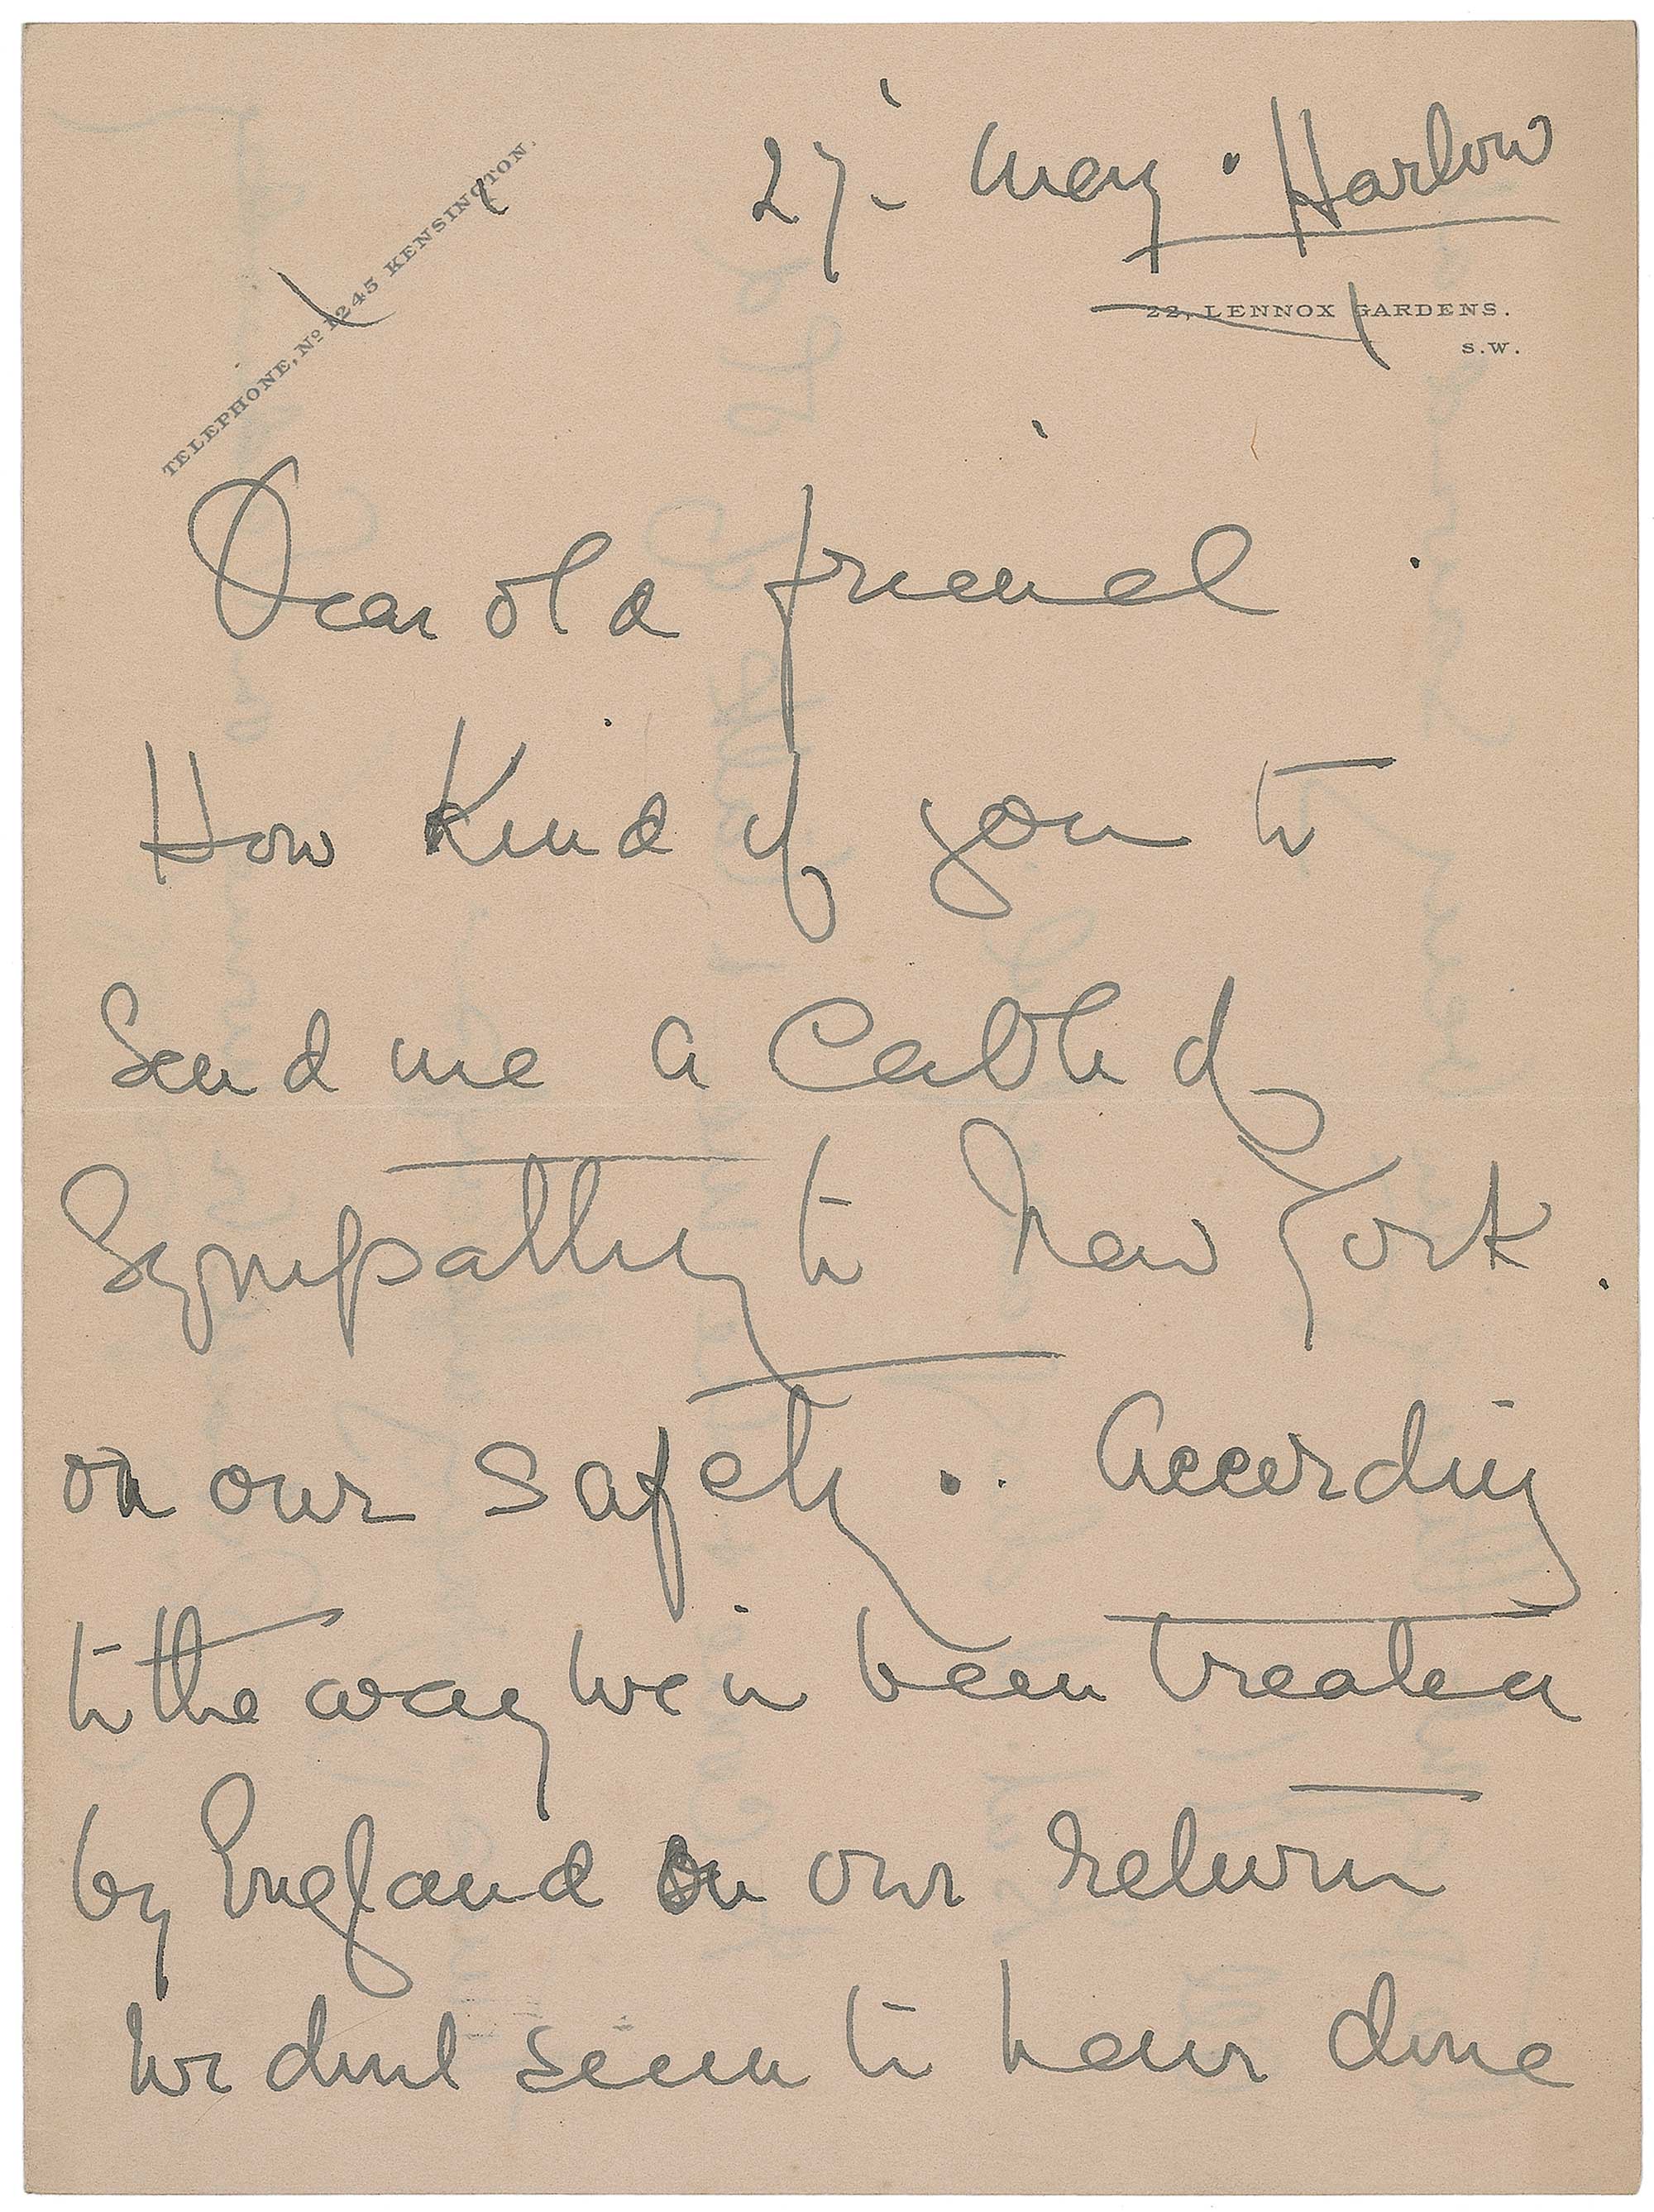 TELEPHONE, Nº 1245 KENSINGTON.
27. May. Harlow
22, LENNOX GARDENS.
S.W.
Dear old friend
How kind of you to
send me a cable of
sympathy to New York
on our safety. According
to the way we've been treated
by England on our return
we dont seem to have done